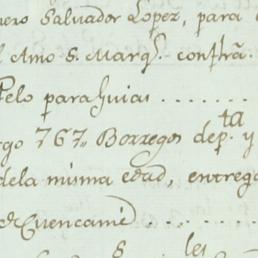 nero Salvador Lopez, para
l Amo S. Marq.s contrã.
Pelo para Guias .......
go 767,, Borregos dep.ta y
dela misma edad, entrega
de Cuencamé .......
s les